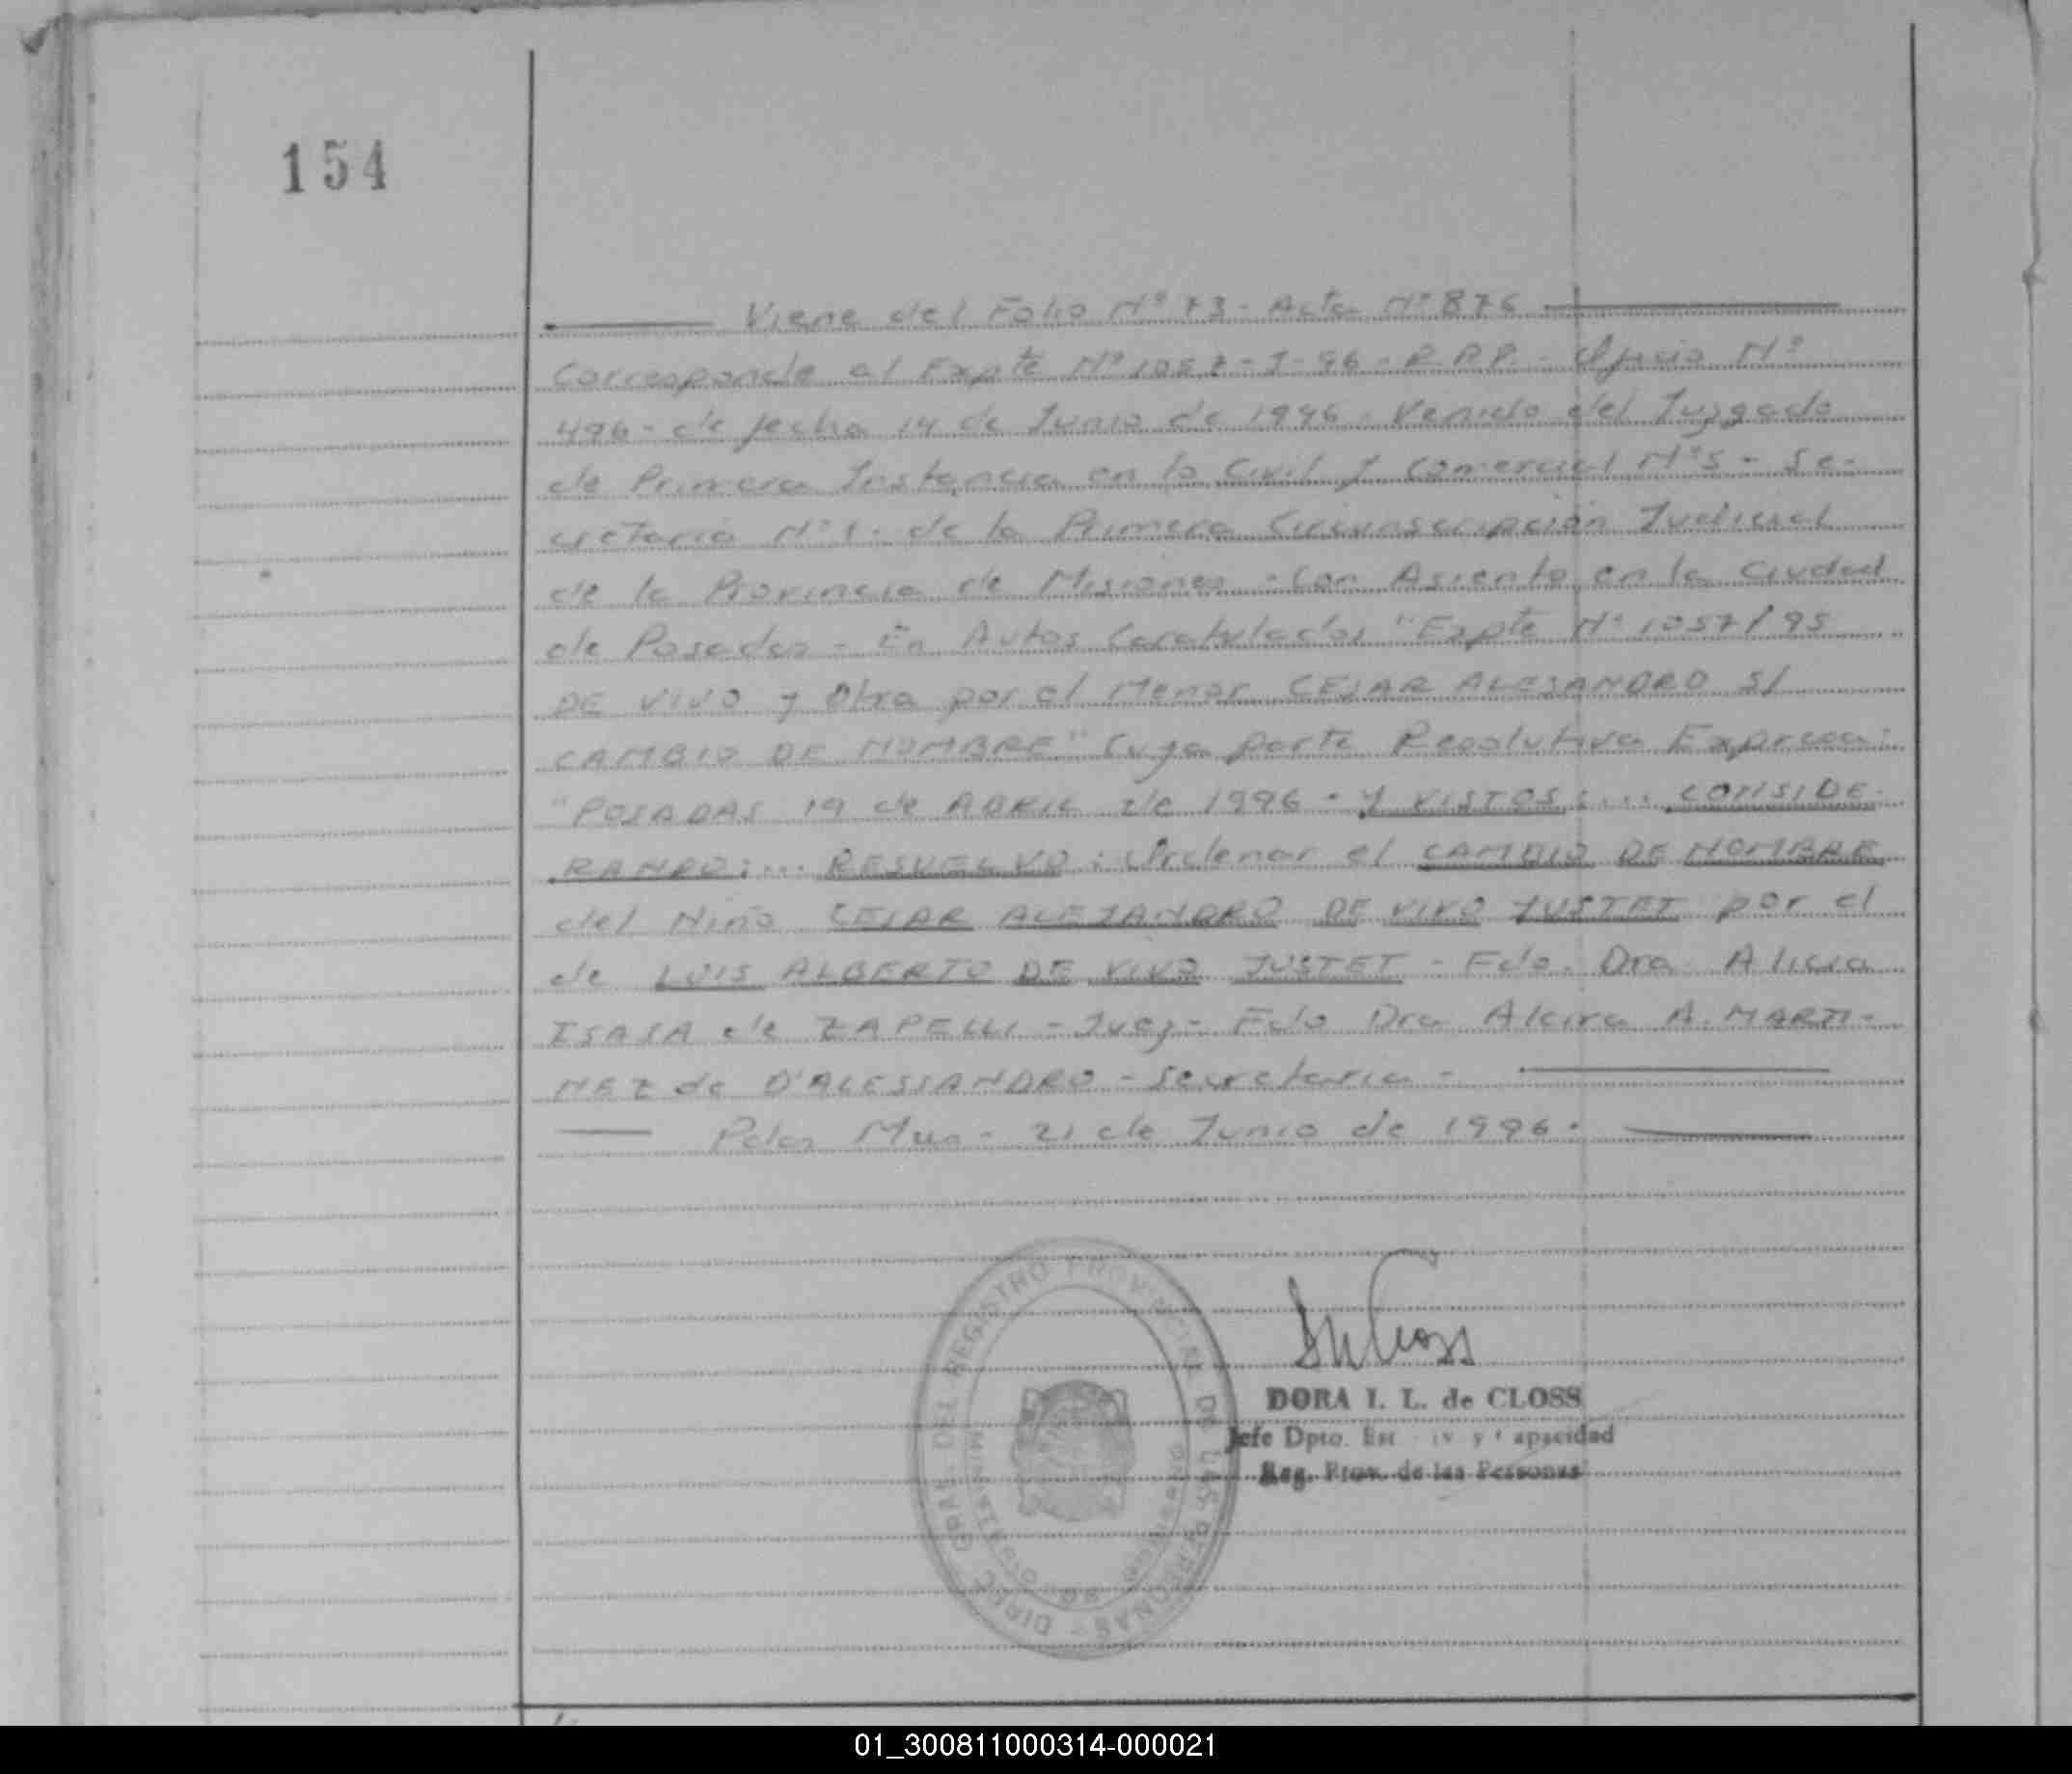 154
Viene del Folio Nº 73 - Acta Nº 876
Corresponde al Expte Nº 1057 - J - 96 - R.P.P. - Oficio Nº
496 - de fecha 14 de Junio de 1996 - Venido del Juzgado
de Primera Instancia en lo Civil y Comercial Nº 5 - Se-
cretaria Nº 1 - de la Primera Circunscripción Judicial
de la Provincia de Misiones - Con Asiento en la Ciudad
de Posadas - En Autos Caratulados "Expte Nº 1057/95
DE VIVO y Otra por el Menor CESAR ALEJANDRO S/
CAMBIO DE NOMBRE" Cuya parte Resolutiva Expresa:
"POSADAS 19 de ABRIL de 1996 - Y VISTOS: ... CONSIDE-
RANDO: ... RESUELVO: Ordenar el CAMBIO DE NOMBRE
del Niño CESAR ALEJANDRO DE VIVO JUSTET por el
de LUIS ALBERTO DE VIVO JUSTET - Fdo. Dra Alicia
ISASA de ZAPELLI - Juez - Fdo Dra Alcira A. MARTI-
NEZ de D'ALESSANDRO - Secretaria -
Pdas Mnes - 21 de Junio de 1996.
DIREC. GRAL. DEL REGISTRO PROVINCIAL DE LAS PERSONAS
DORA I. L. de CLOSS
Jefe Dpto. Est y apacidad
Reg. Prov. de las Personas
01_300811000314-000021